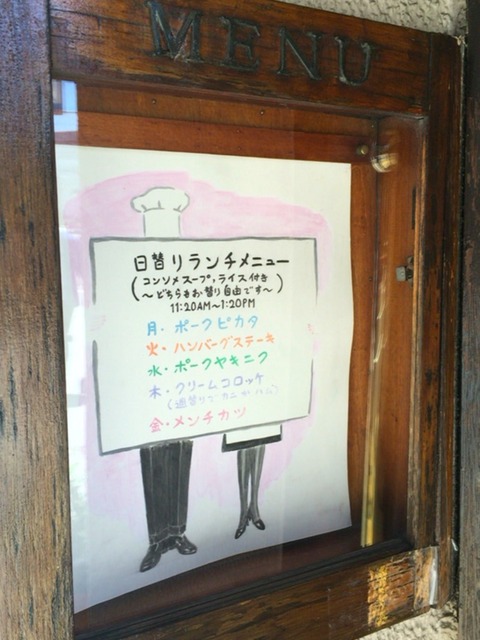 MENU
日替りランチメニュー
(コンソメスープ,ライス付き
〜どちらもお替り自由です〜)
11:20AM〜1:20PM
月・ポークピカタ
火・ハンバーグステーキ
水・ポークヤキニク
木・クリームコロッケ
(週替りでカニか
金・メンチカツ